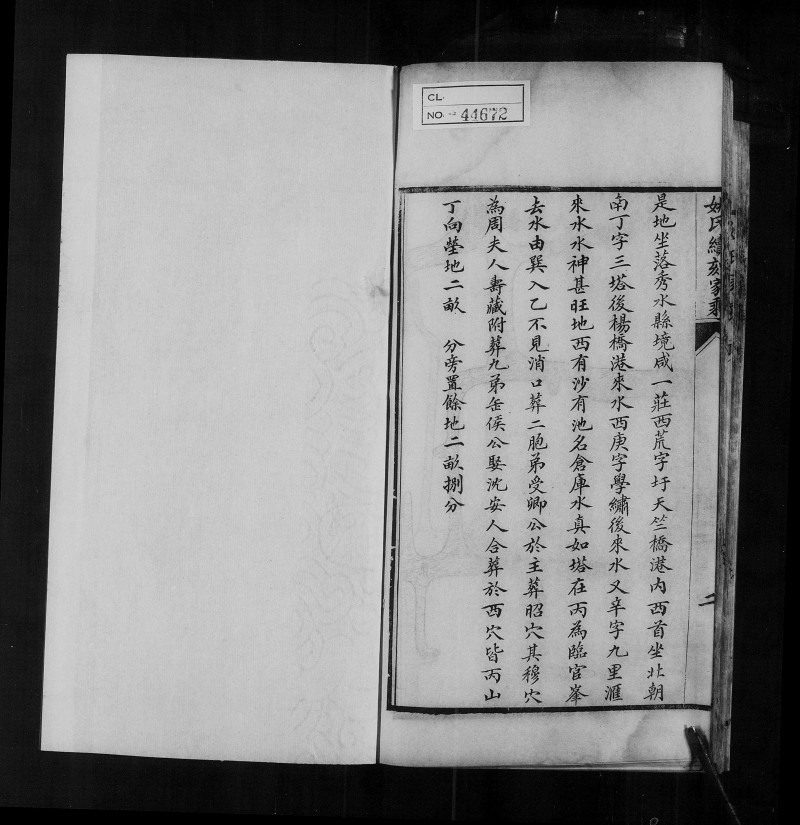 CL.
NO. 44672
姚氏續刻家乘
是地坐落秀水縣境咸一莊西荒字圩天竺橋港內西首坐北朝
南丁字三塔後楊橋港來水西庚字學繡後來水又辛字九里滙
來水水神甚旺地西有沙有池名倉庫水真如塔在丙為臨官峯
去水由巽入乙不見消口葬二胞弟受卿公於主葬昭穴其穆穴
為周夫人壽藏附葬九弟岳侯公娶沈安人合葬於西穴皆丙山
丁向塋地二畝　分旁置餘地二畝捌分
二